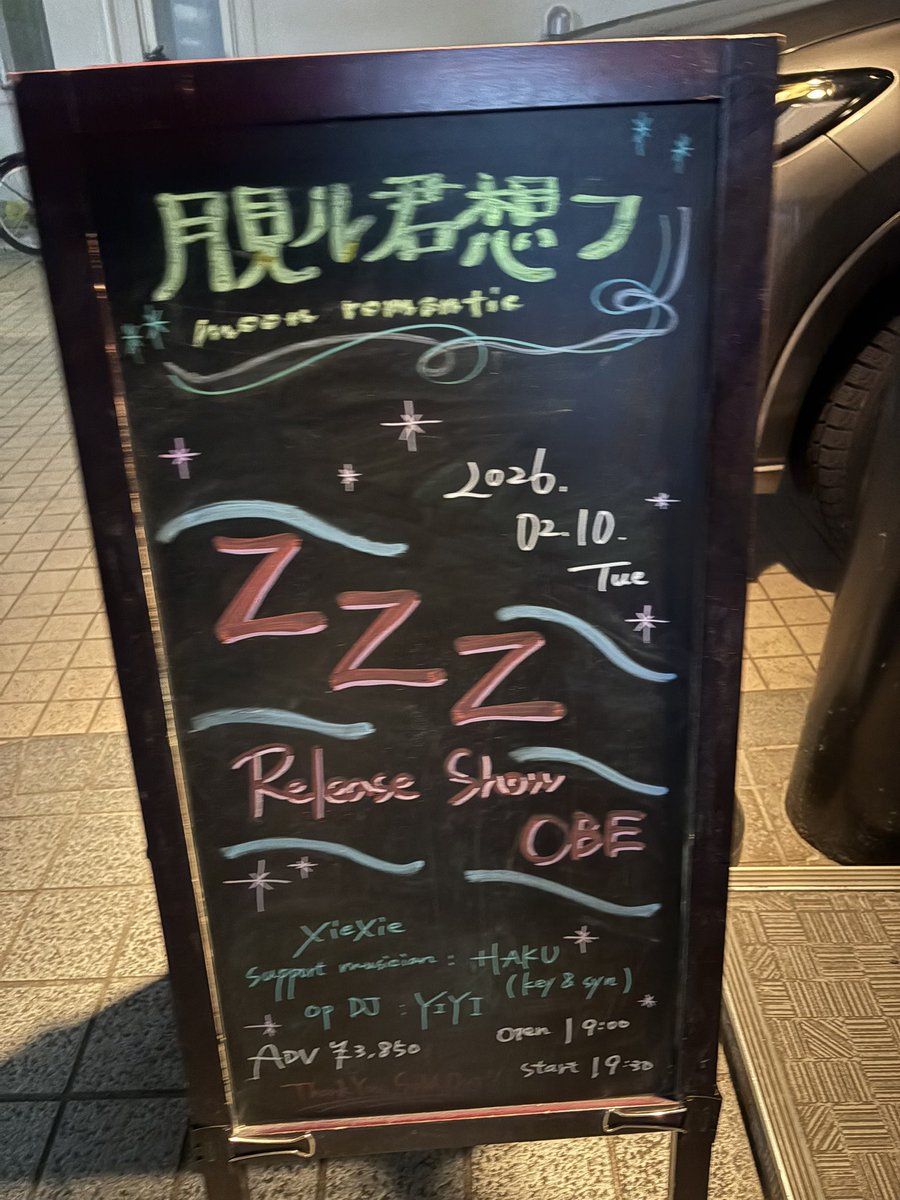 月見ル君想フ
moon romantic
2026.
02.10.
Tue
Z
Z
Z
Release Show
OBE
XieXie
Support musician : HAKU
(key & syn)
op DJ : YIYI
Open 19:00
ADV ¥3,850
start 19:30
Thank You Sold Out!